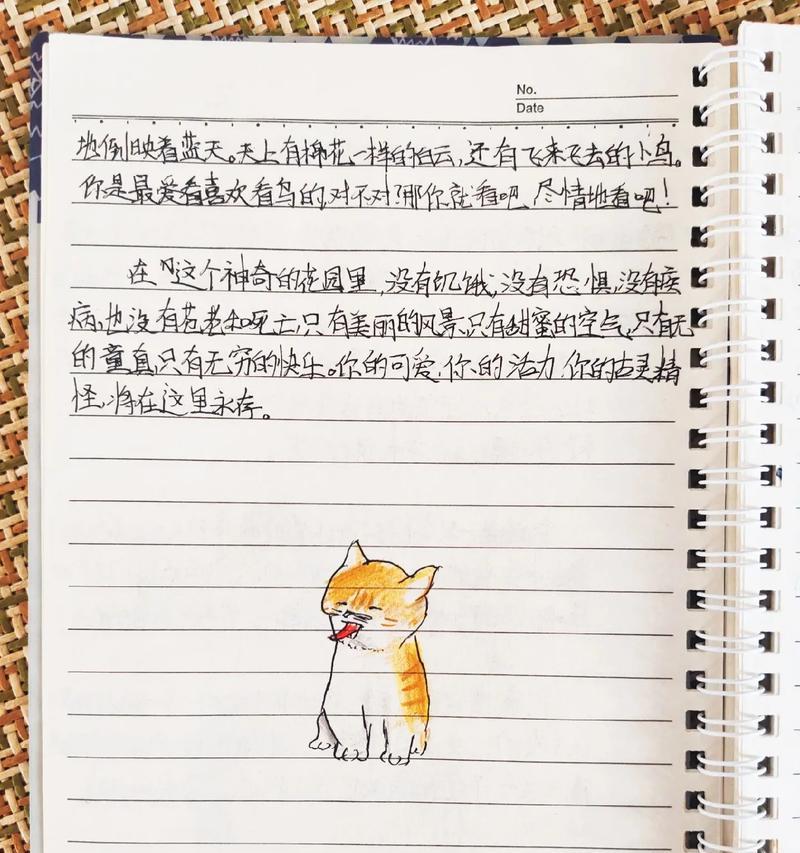 No.
Date
地倒映着蓝天。天上有棉花一样的白云,还有飞来飞去的小鸟。
你是最爱看喜欢看鸟的,对不对?那你就看吧,尽情地看吧!
在这个神奇的花园里,没有饥饿,没有恐惧,没有疾
病,也没有苍老和死亡,只有美丽的风景,只有甜蜜的空气,只有无
的童真,只有无穷的快乐。你的可爱,你的活力,你的古灵精
怪,将在这里永存。